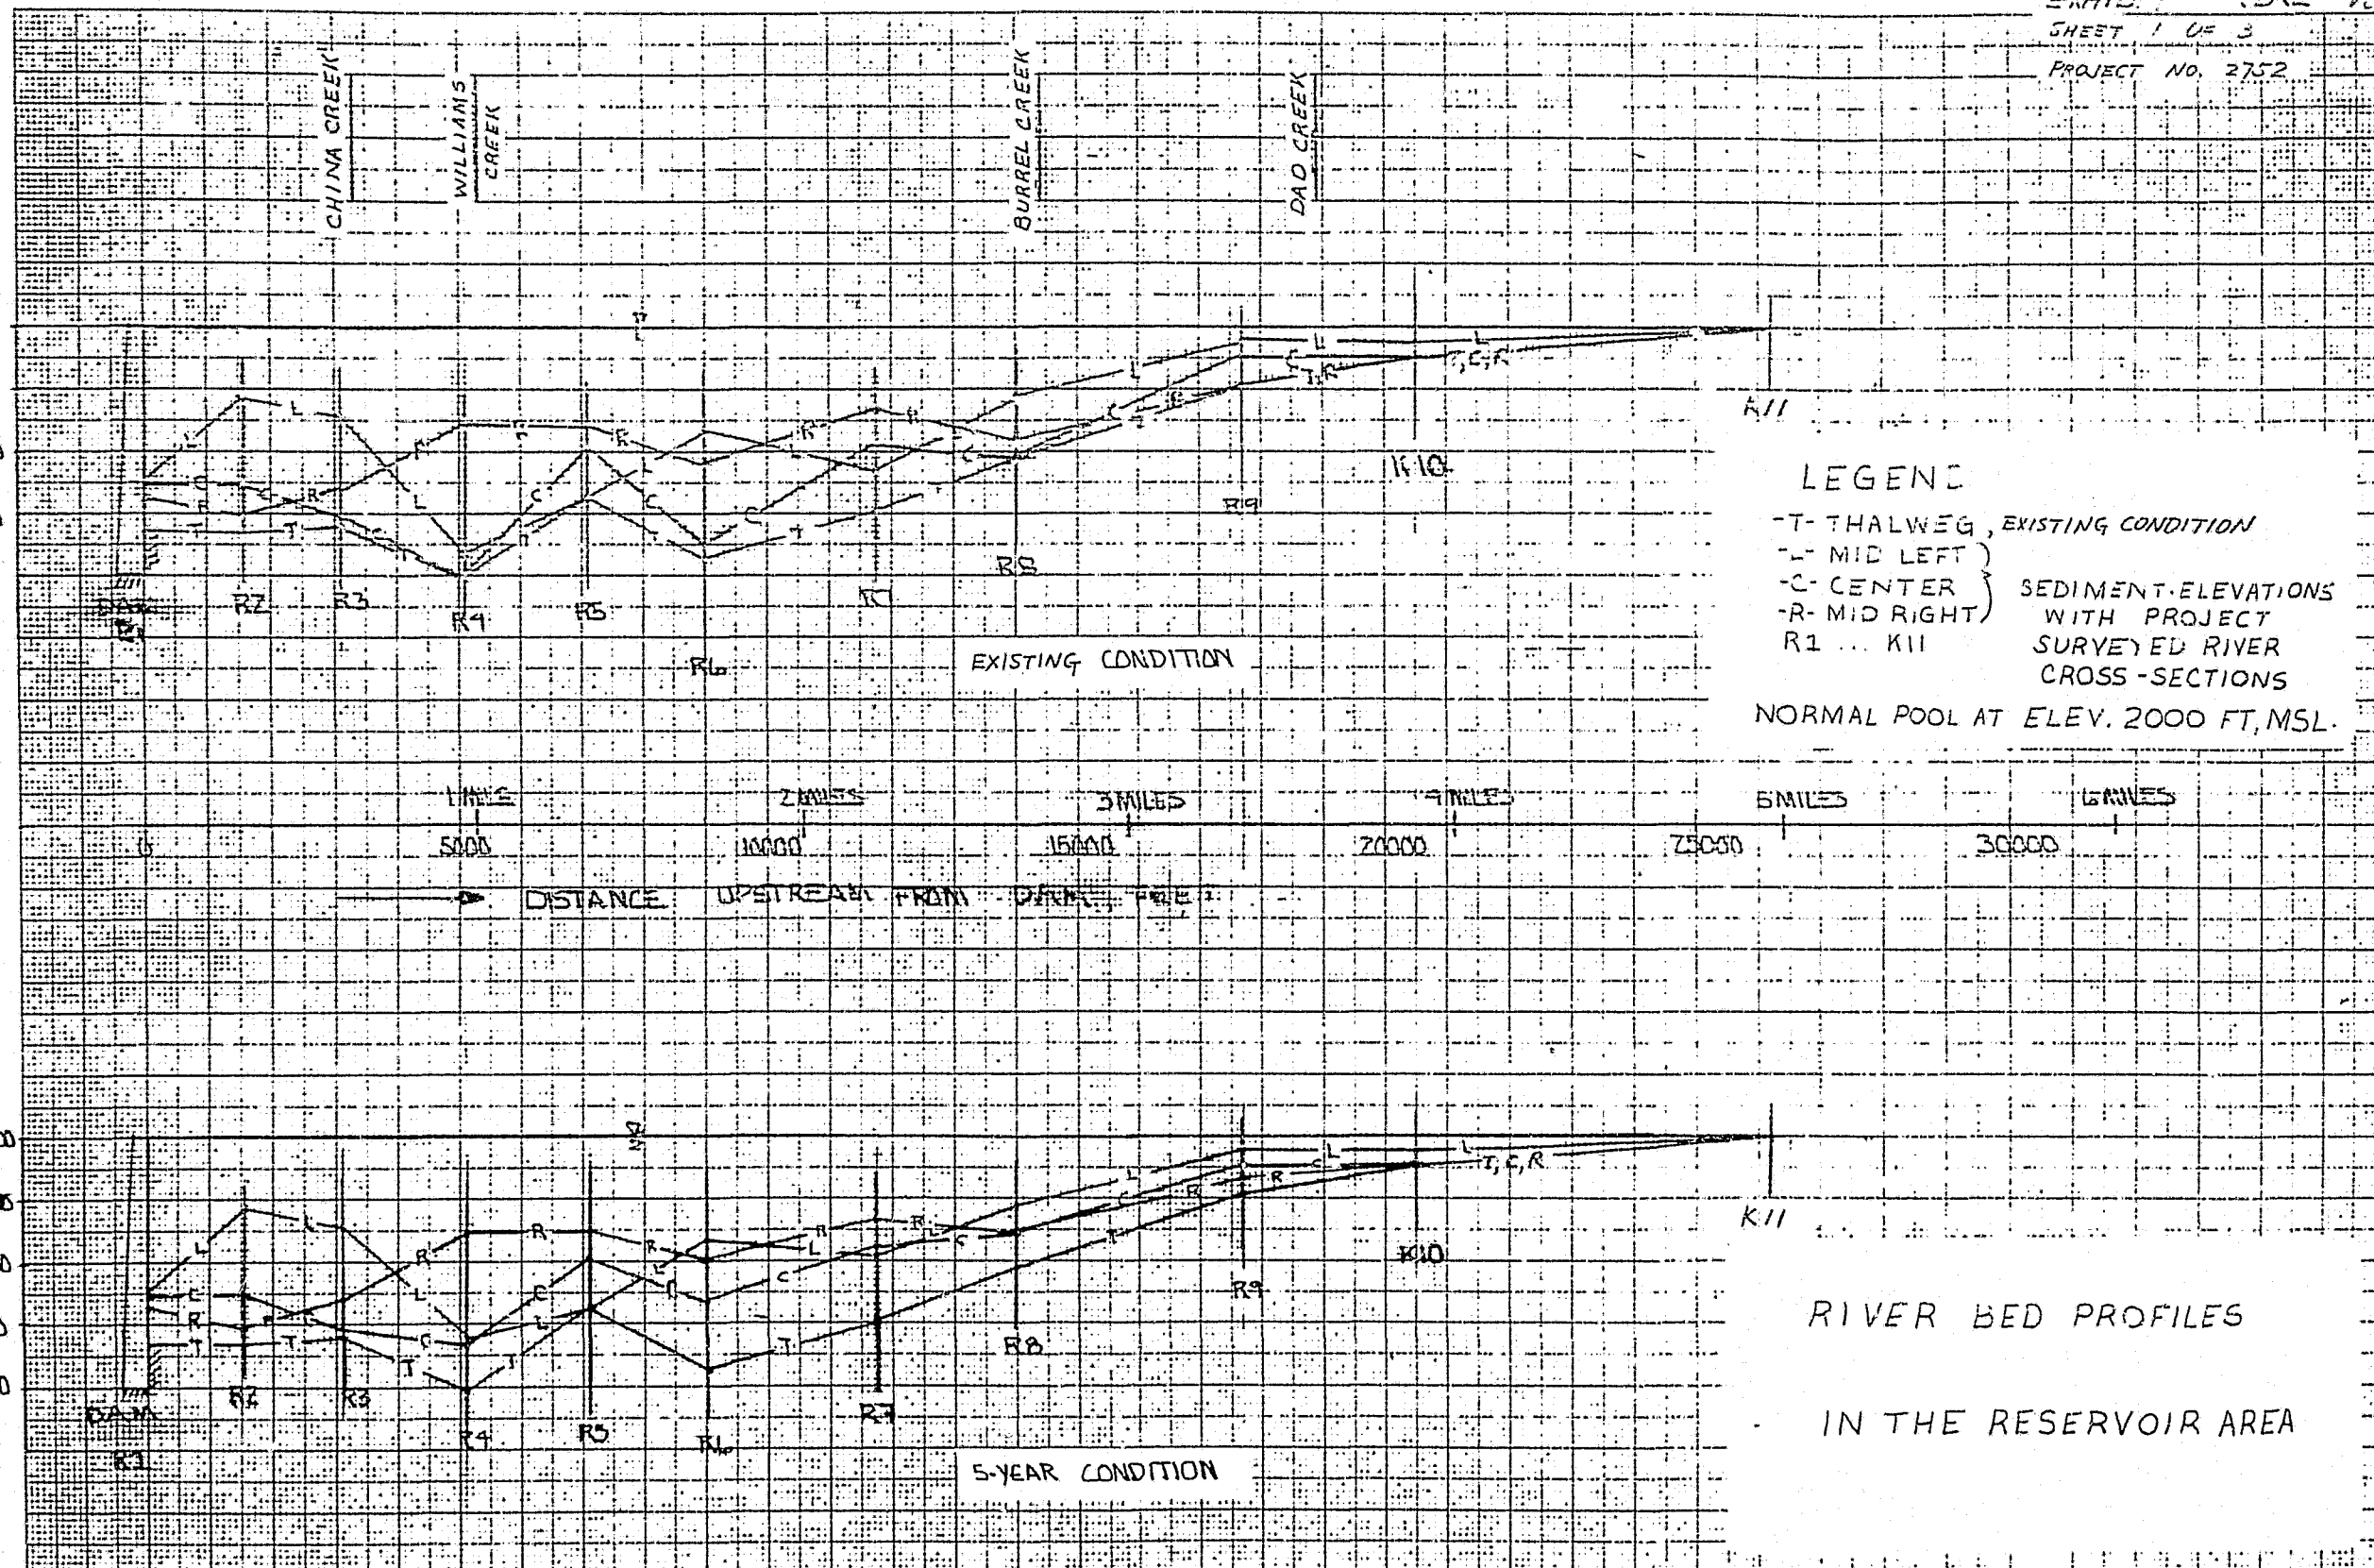 SHEET 1 OF 3
PROJECT NO. 2752
CHINA CREEK
WILLIAMS
CREEK
BURREL CREEK
DAD CREEK
L
L
L
T,R
T,C,R
K11
K10
R9
R8
R2
R3
R4
R5
R6
EXISTING CONDITION
LEGEN
-T- THALWEG, EXISTING CONDITION
-L- MID LEFT
-C- CENTER
-R- MID RIGHT
SEDIMENT ELEVATIONS
WITH PROJECT
R1 ... K11
SURVEYED RIVER
CROSS-SECTIONS
NORMAL POOL AT ELEV. 2000 FT, MSL.
1 MILE
2 MILES
3 MILES
4 MILES
5 MILES
6 MILES
0
5000
10000
15000
20000
25000
30000
DISTANCE UPSTREAM FROM DAM, FEET
L
L
T,C,R
K11
K10
R9
R8
R7
DAM
R1
R2
R3
R4
R5
R6
5-YEAR CONDITION
RIVER BED PROFILES
IN THE RESERVOIR AREA